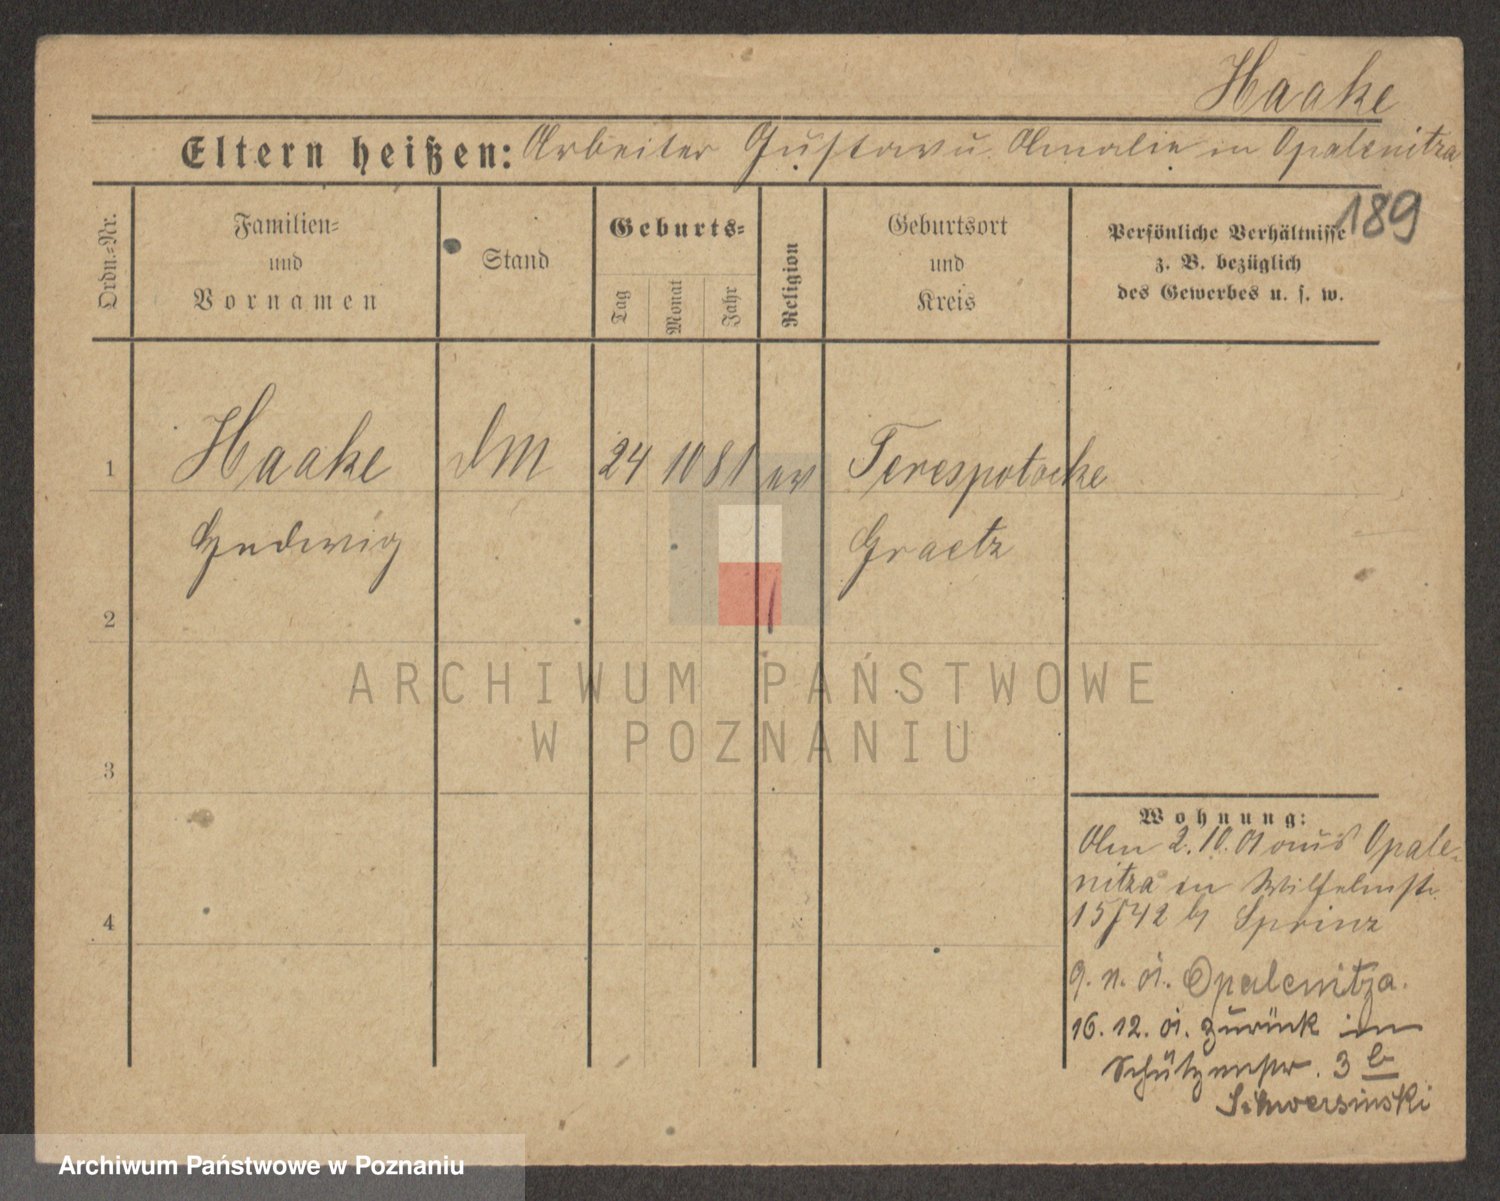 Haake
Eltern heißen: Arbeiter Gustav u. Amalie in Opalenitza
189
Ordn.-Nr.
Familien-
und
Vornamen
Stand
Geburts-
Tag
Monat
Jahr
Religion
Geburtsort
und
Kreis
Persönliche Verhältnisse
z. B. bezüglich
des Gewerbes u. s. w.
1 Haake DM 24 10 81 ev Terespotocke
Hedwig Graetz
2
3
4
Wohnung:
Am 2.10.01 aus Opale-
nitza in Wilhelmstr.
15/42 b/ Sprinz
9. n. Opalenitza.
16.12.01. zurück in
Schützenstr. 3 b
Schwersinski
ARCHIWUM PAŃSTWOWE
W POZNANIU
Archiwum Państwowe w Poznaniu